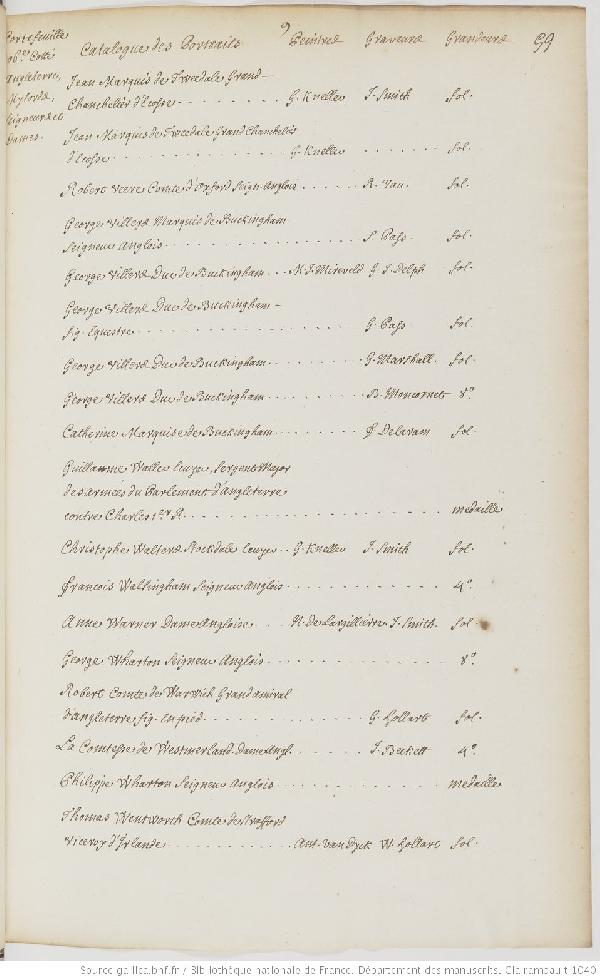 9
Portefeuille
Cotté
Angleterre,
Mylords,
Seigneurs et
Dames.
Catalogue des Portraits Peintres Graveurs Grandeurs 99
Jean Marquis de Tweedale Grand-
Chancellier d'Ecosse G. Kneller J. Smith fol.
Jean Marquis de Tweedale Grand Chancelier
d'Ecosse G. Kneller fol.
Robert Veere Comte d'Oxford Seign. Anglois R. Vau. fol.
George Villers Marquis de Buckingham
Seigneur Anglois S. Pass. fol.
George Villers Duc de Buckingham M. J. Mireveld G. J. Delph fol.
George Villers Duc de Buckingham-
fig. Equestre G. Pass fol.
George Villers Duc de Buckingham G. Marshall. fol.
George Villers Duc de Buckingham B. Moncornet 8°.
Catherine Marquise de Buckingham F. Delaram fol.
Guillaume Waller Ecuyer, Sergent Major
des armées du Parlement d'Angleterre
contre Charles 1er R. medaille
Christophe Walters Stockdale Ecuyer G. Kneller J. Smith fol.
François Walsingham Seigneur Anglois 4°.
Anne Warner Dame Angloise N. De Largilliere J. Smith. fol.
George Wharton Seigneur Anglois 8°.
Robert Comte de Warwich Grand amiral
d'angleterre fig. en pied G. Hollart fol.
La Comtesse de Westmerland Dame Angl. J. Beckett 4°.
Philippe Wharton Seigneur Anglois medaille
Thomas Wentworth Comte de Strafford
Viceroy d'Irlande Ant. Van Dyck W. Hollart fol.
Source gallica.bnf.fr / Bibliothèque nationale de France. Département des manuscrits. Clairambault 1040